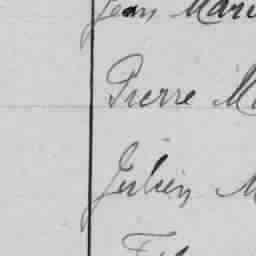 Jean Mari
Pierre M
Julien M